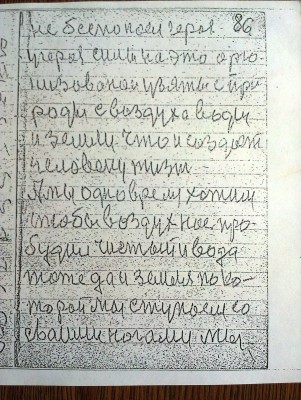 не бесполоем героя 86
героя силы на это орга
низовоной узяты с при
роды с воздуха води
и земли что и создает
человеку жизн
А мы одно время хочим
чтобы воздух нас про
будил чистый и вода
тоже да и земля по ко-
торой мы ступаем со
своими ногами мы